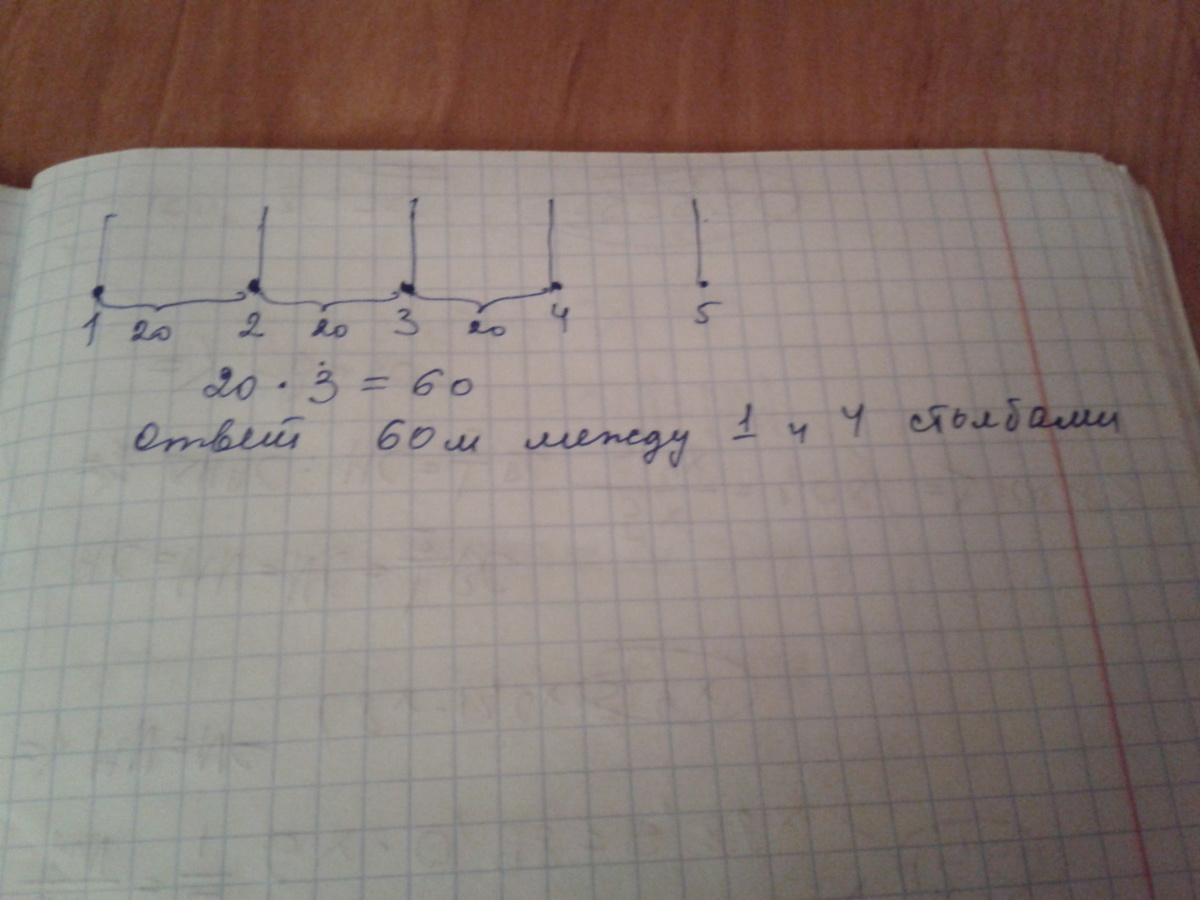 1 20 2 20 3 20 4 5
20 · 3 = 60
ответ 60 м между 1 и 4 столбами